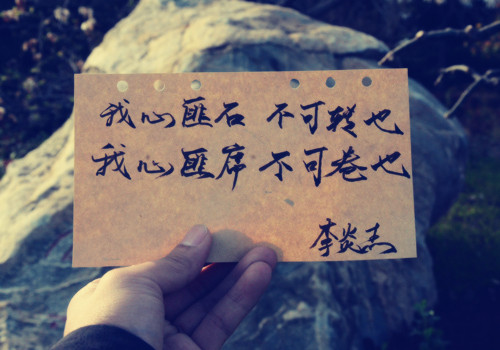 我心匪石 不可转也
我心匪席 不可卷也
李炎杰